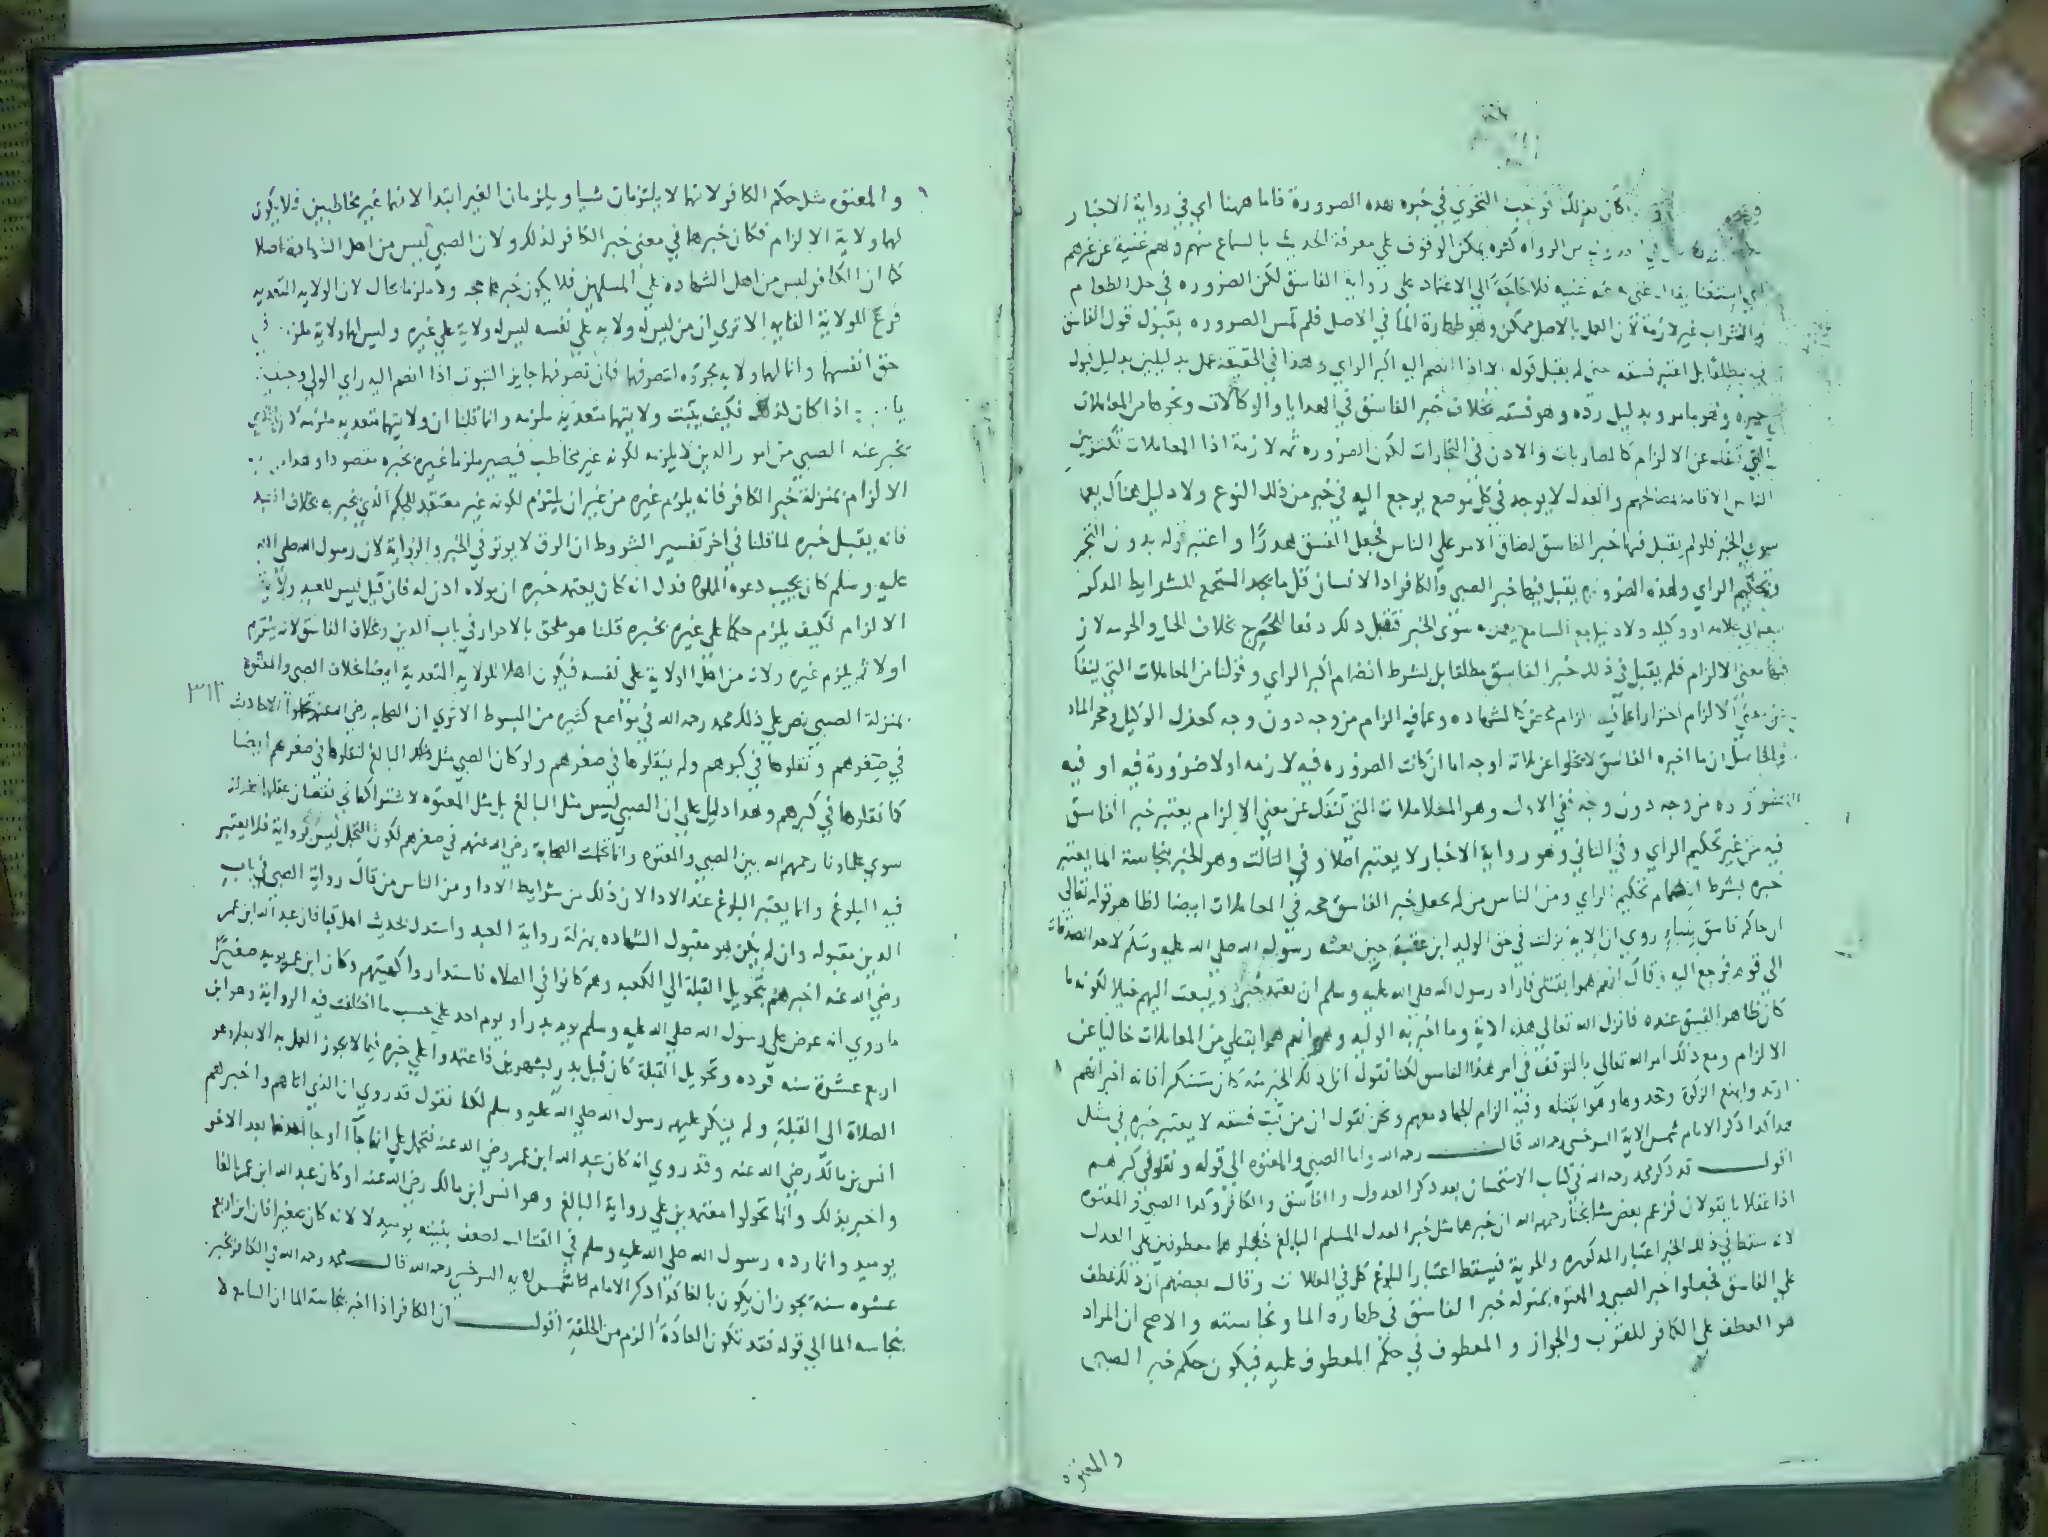 كان بعد ذلك توجب التحري في خبره بهذه الضرورة فاما ههنا اي في رواية الاخبار
من الرواه كثره يمكن الوقوف علي معرفة الحديث بالسماع منهم وبهم غنية عن غيرهم
اي استغنا غنيه فلا حاجة الي الاعتماد علي رواية الفاسق لكن الضروره في حل الطعام
والشراب غير لازمة لان العمل بالاصل ممكن وهو طهارة الما في الاصل فلم تمس الضروره بقبول قول الفاسق
فيه مطلقا بل اعتبر فسقه حتى لم يقبل قوله الا اذا انضم اليه اكبر الراي وهذا في الحقيقة عمل بدليلين بدليل قبول
خبره وهو ما مر وبدليل رده وهو فسقه بخلاف خبر الفاسق في الهدايا والوكالات ونحوها من المعاملات
التي تنفك عن الالزام كالمضاربات والاذن في التجارات لكون الضروره ثمه لازمة اذا المعاملات تكثر بين
الناس لاقامة مصالحهم والعدل لا يوجد في كل موضع يرجع اليه في خبر من ذلك النوع ولا دليل هناك يعمل
سوي الخبر فلو لم يقبل فيها خبر الفاسق لضاق الامر علي الناس فجعل الفسق هدرًا واعتبر قوله بدون التحري
وتحكيم الراي ولهذه الضروره يقبل فيها خبر الصبي والكافر اذ الانسان قل ما يجد المستجمع لشرايط المذكوره
يبعثه الي غلامه او وكيله ولا دليل مع السامع يعمل به سوى الخبر فقبل ذلك دفعا للحرج بخلاف الحل والحرمه لان
فيها معني الالزام فلم يقبل في ذلك خبر الفاسق مطلقا بل بشرط انضمام اكبر الراي وقولنا من المعاملات التي تنفك
عن معني الالزام احترازا عما فيه الزام محض كالشهاده وعما فيه الزام من وجه دون وجه كعزل الوكيل وحجر الماذون
والحاصل ان ما اخبره الفاسق لا يخلوا عن ثلاثة اوجه اما ان كانت الضروره فيه لازمه اولا ضرورة فيه او فيه
ضروره من وجه دون وجه ففي الاول وهو المعاملات التي تنفك عن معني الالزام يعتبر خبر الفاسق
فيه من غير تحكيم الراي وفي الثاني وهو رواية الاخبار لا يعتبر اصلا وفي الثالث وهو الخبر بنجاسة الما يعتبر
خبره بشرط انضمام تحكيم الراي ومن الناس من لم يجعل خبر الفاسق حجه في المعاملات ايضا لظاهر قوله تعالى
ان جاكم فاسق بنباء روي ان الاية نزلت في حق الوليد ابن عقبة حين بعثه رسول الله صلي الله عليه وسلم لاخذ الصدقات
الى قوم فرجع اليه وقال انهم هموا بقتلي فاراد رسول الله صلى الله عليه وسلم ان يعتمد خبره ويبعث اليهم خيلا لكونه ما
كان ظاهر الفسق عنده فانزل الله تعالى هذه الاية وما اخبر به الوليد وهو انهم هموا بقتلي من المعاملات خاليا عن
الالزام ومع ذلك امر الله تعالى بالتوقف في امر هذا الفاسق لكنا نقول ان ذلك الخبر منه كان مستنكرا فانه اخبر انهم
ارتدوا ومنع الزكوة وجحدوها وهموا بقتله وفيه الزام الجهاد معهم ونحن نقول ان من ثبت فسقه لا يعتبر خبره في مثل
هذا كذا ذكر الامام شمس الاية السرخسي رحمه الله قال رحمه الله واما الصبي والمعتوه الي قوله ونقلوا في كبرهم
اقول قد ذكر محمد رحمه الله في كتاب الاستحسان بعد ذكر العدول والفاسق والكافر وكذا الصبي والمعتوه
اذا عقلا ما يقولان فزعم بعض مشايخنا رحمهم الله ان خبرهما مثل خبر العدل المسلم البالغ فجعلوا هما معطوفين علي العدل
لانه سقط في ذلك الخبر اعتبار المذكوره والحرية فيسقط اعتبار البلوغ كما في المعاملات وقال بعضهم ان ذلك عطف
علي الفاسق فجعلوا خبر الصبي والمعتوه بمنزله خبر الفاسق في طهاره الما ونجاسته والاصح ان المراد
هو العطف على الكافر للقرب والجواز والمعطوف في حكم المعطوف عليه فيكون حكم خبر الصبي
والمعتوه
والمعتوه مثل حكم الكافر لانهما لا يلتزمان شيا ويلزمان الغير ابتدا لانهما غير مخاطبين فلا يكون
لهما ولاية الالزام فكان خبرهما في معنى خبر الكافر لذلك ولان الصبي ليس من اهل الشهادة اصلا
كما ان الكافر ليس من اهل الشهاده علي المسلمين فلا يكون خبرهما حجه ولا ملزما بحال لان الولايه المتعديه
فرع الولاية القايمه الا تري ان من ليس له ولايه علي نفسه ليس له ولاية على غيره وليس لهما ولاية ملزمه في
حق انفسهما وانما لهما ولايه مجوزه لتصرفهما فان تصرفهما جايز الثبوت اذا انضم اليه راي الولي وجب
اذا كان كذلك فكيف يثبت ولايتهما متعديه ملزمه وانما قلنا ان ولايتهما متعديه ملزمه لان الذي
يخبر عنه الصبي من امور الدين لا يلزمه لكونه غير مخاطب فيصير ملزما غيره بخبره مقصودا وهذا
الالزام بمنزلة خبر الكافر فانه يلزم غيره من غير ان يلتزم لكونه غير معتقد للحكم الذي يخبر به بخلاف العبد
فانه يقبل خبره لما قلنا في اخر تفسير الشروط ان الرق لا يوثر في الخبر والرواية لان رسول الله صلى الله
عليه وسلم كان يجيب دعوه المملوك فدل انه كان يعتمد خبره ان مولاه اذن له فان قيل ليس للعبد ولاية
الالزام فكيف يلزم حكما على غيره بخبره قلنا هو ملحق بالاحرار في باب الدين وخلاف الفاسق لانه يلتزم
اولا ثم يلزم غيره ولانه من اهل الولاية على نفسه فيكون اهلا للولايه المتعدية ايضا بخلاف الصبي والمعتوه
بمنزلة الصبي نص علي ذلك محمد رحمه الله في مواضع كثيره من المبسوط الا تري ان الصحابه رضي الله عنهم تحملوا الاحاديث
٣١٢
في صغرهم ونقلوها في كبرهم ولم ينقلوها في صغرهم ولو كان الصبي مثل البالغ لنقلوها في صغرهم ايضا
كما نقلوها في كبرهم وهذا دليل علي ان الصبي ليس مثل البالغ بل مثل المعتوه لاشتراكهما في نقصان عقلهما
سوي علماونا رحمهم الله بين الصبي والمعتوه وانما تحملت الصحابة رضي الله عنهم في صغرهم لكون التحمل ليس برواية فلا يعتبر
فيه البلوغ وانما يعتبر البلوغ عند الادا لان ذلك من شرايط الادا ومن الناس من قال رواية الصبي في باب
الدين مقبوله وان لم يكن هو مقبول الشهاده بمنزلة رواية العبد واستدل بحديث اهل قبا فان عبد الله ابن عمر
رضي الله عنه اخبرهم بتحويل القبلة الى الكعبه وهم كانوا في الصلاه فاستداروا كهيئتهم وكان ابن عمر يوميذ صغيرًا
ما روي انه عرض علي رسول الله صلي الله عليه وسلم يوم بدر او يوم احد علي حسب ما اختلفت فيه الرواية وهو ابن
اربع عشرة سنه فرده وتحويل القبلة كان قبل بدر بشهرين فاعتمدوا علي خبره فيما لا يجوز العمل به الا بعلم وهو
الصلاة الى القبلة ولم ينكر عليهم رسول الله صلي الله عليه وسلم لكنا نقول قد روي ان الذي اتاهم واخبرهم
انس بن مالك رضي الله عنه وقد روي انه كان عبد الله ابن عمر رضي الله عنه فتحمل علي انهما جاا احدهما بعد الاخر
واخبر بذلك وانما تحولوا معتمدين علي رواية البالغ وهو انس ابن مالك رضي الله عنه او كان عبد الله ابن عمر بالغا
يوميد وانما رده رسول الله صلي الله عليه وسلم في القتال لضعف بنيته يوميد لا لانه كان صغيرا فان ابن اربع
عشره سنة يجوز ان يكون بالغا كذا ذكر الامام شمس الايه السرخسي رحمه الله قال محمد رحمه الله في الكافر يخبر
بنجاسه الما الي قوله فقد تكون العادة الزم من الخلقة اقول ان الكافر اذا اخبر بنجاسة الما ان السامع لا